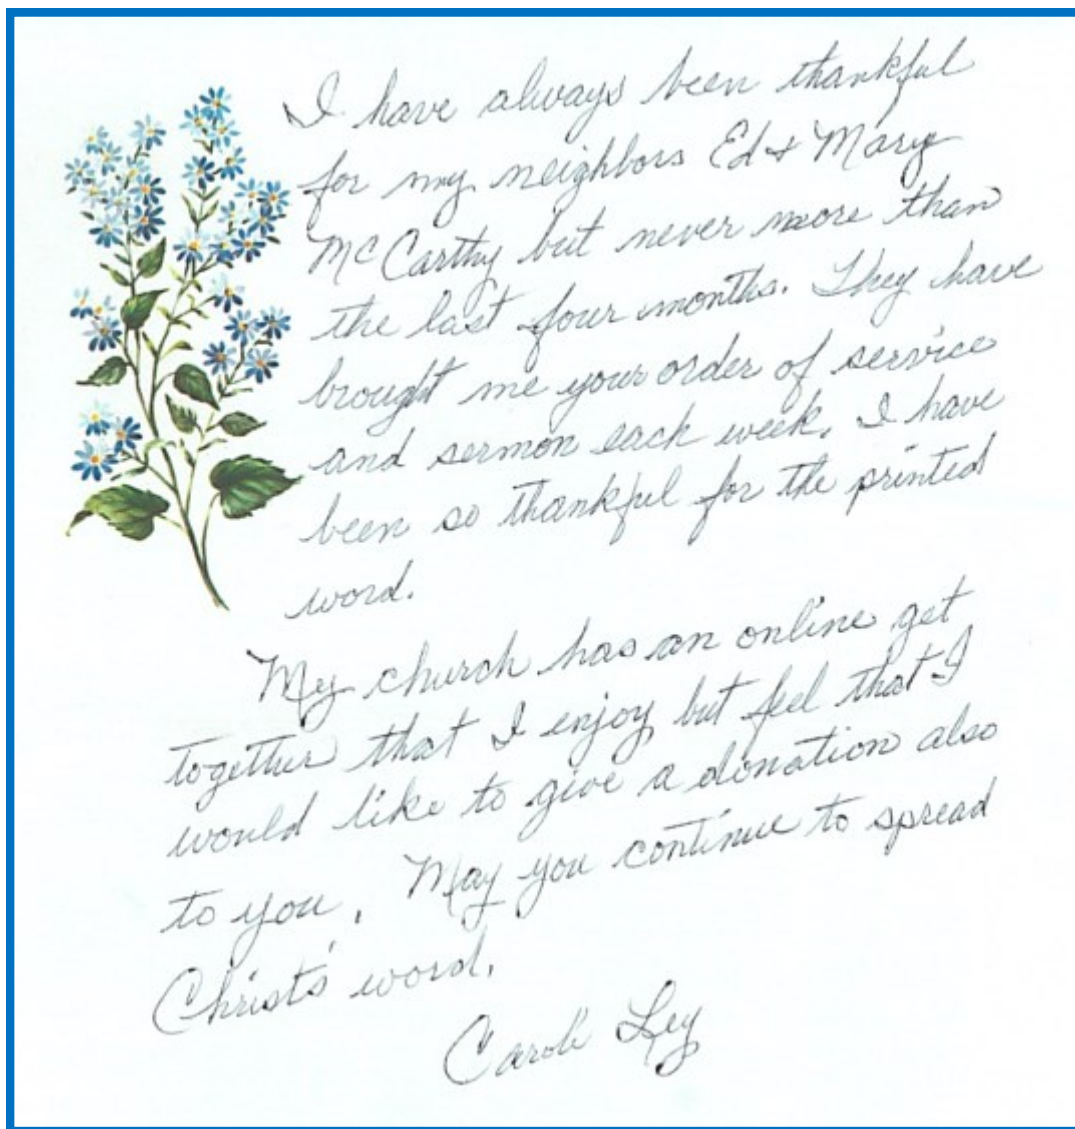 I have always been thankful
for my neighbors Ed & Mary
McCarthy but never more than
the last four months. They have
brought me your order of service
and sermon each week. I have
been so thankful for the printed
word.
My church has an online get
together that I enjoy but feel that I
would like to give a donation also
to you. May you continue to spread
Christ's word.
Carole Ley